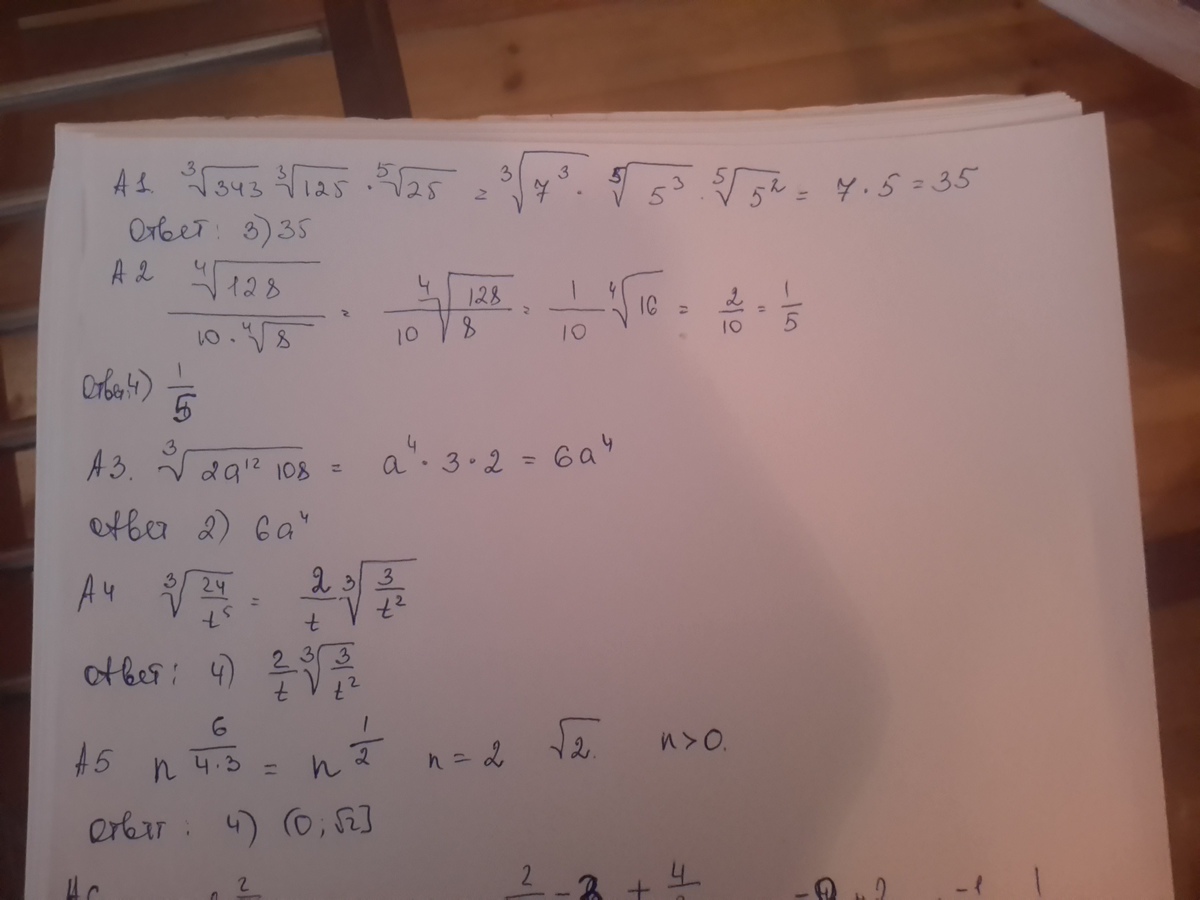 А1. ∛343 ∛125 · ⁵√25 = ∛7³ · ⁵√5³ · ⁵√5² = 7 · 5 = 35
Ответ: 3) 35
А2 ⁴√128 / (10 · ⁴√8) = 1/10 ⁴√(128/8) = 1/10 ⁴√16 = 2/10 = 1/5
Ответ 4) 1/5
А3. ∛(2a¹² 108) = a⁴ · 3 · 2 = 6a⁴
Ответ 2) 6a⁴
А4 ∛(24/t⁵) = 2/t ∛(3/t²)
Ответ: 4) 2/t ∛(3/t²)
А5 n^(6/(4·3)) = n^(1/2) n = 2 √2. n > 0.
Ответ: 4) (0; √2]